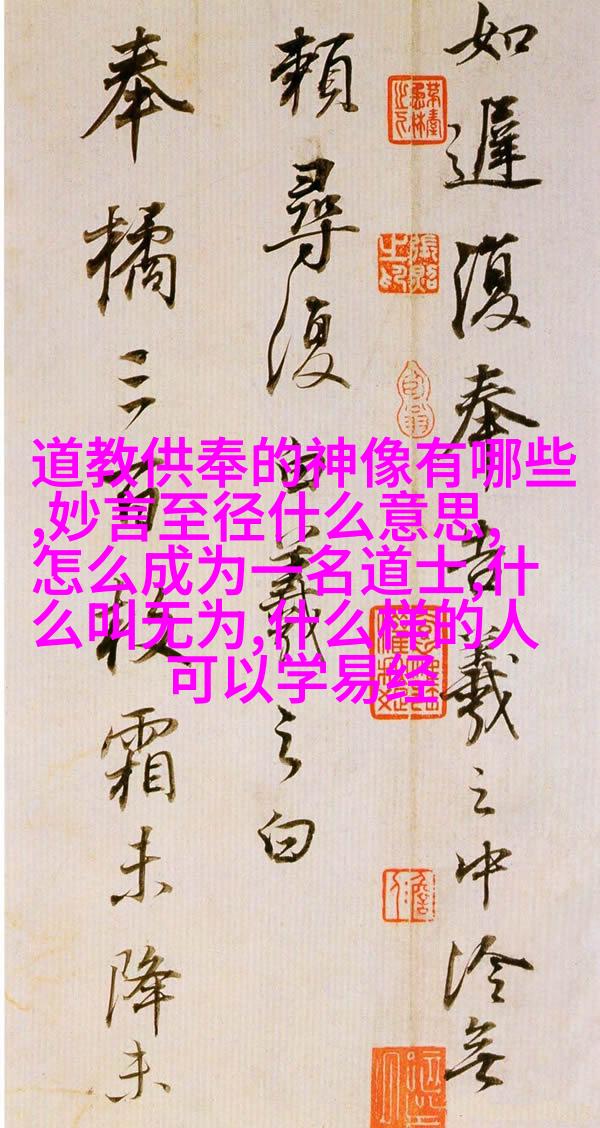 如遲復奉告羲之中冷無
賴尋復白羲之白
奉橘三百枚霜未降未
道教供奉的神像有哪些
,妙言至径什么意思,
怎么成为一名道士,什
么叫无为,什么样的人
可以学易经